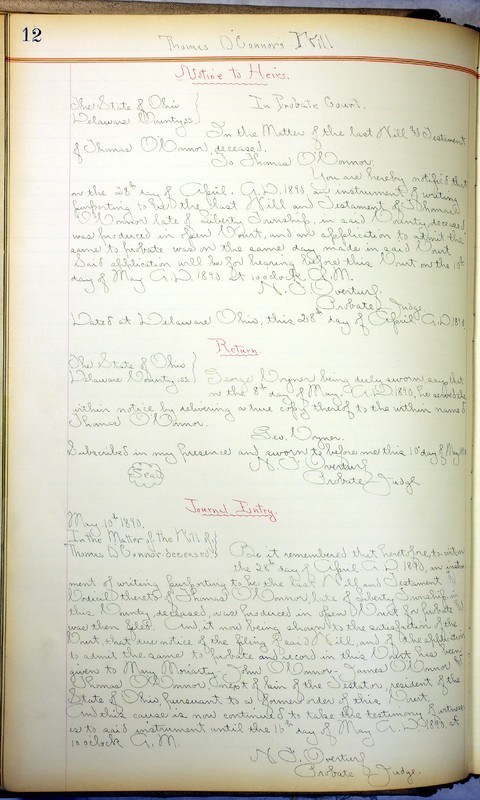 12
Thomas O'Connors Will
Notice to Heirs.
The State of Ohio
Delaware County ss
In Probate Court.
In the Matter of the last Will & Testament
of Thomas O'Connor, deceased.
To Thomas O'Connor,
You are hereby notified that
on the 28th day of April A.D. 1890 an instrument of writing
purporting to be the last Will and Testament of Thomas
O'Connor late of Liberty Township, in said County, deceased
was produced in open Court, and an application to admit the
same to probate was on the same day made in said Court.
Said application will be for hearing before this Court on the 10th
day of May A.D. 1890 at 10 oclock A.M.
N. F. Overturf,
Probate Judge.
Dated at Delaware Ohio, this 28th day of April A.D. 1890.
Return.
The State of Ohio
Delaware County, ss
George being duly sworn, says that
on the 8th day of May A.D. 1890, he served the
within notice by delivering a true copy thereof to the within named
Thomas O'Connor.
Geo.
Subscribed in my presence and sworn to before me this 10th day of May
N. F. Overturf
Probate Judge
Seal
Journal Entry.
May 10th 1890.
In the Matter of the Will of
Thomas O'Connor deceased
Be it remembered that heretofore, to wit on
the 28th day of April A.D. 1890, an instru
ment of writing purporting to be the last Will and Testament &
Codicil thereto of Thomas O'Connor late of Liberty Township, in
this County, deceased, was produced in open Court for probate &
was then filed. And it now being shown to the satisfaction of the
Court, that due notice of the filing of said Will, and of the application
to admit the same to probate and record in this Court has been
given to Mary Moriarty, John O'Connor, James O'Connor &
Thomas O'Connor next of kin of the Testator, resident of the
State of Ohio, pursuant to a former order of this Court.
And this cause is now continued to take the testimony of witness
es to said instrument until the 16th day of May A.D. 1890 at
10 oclock A.M.
N. F. Overturf
Probate Judge.